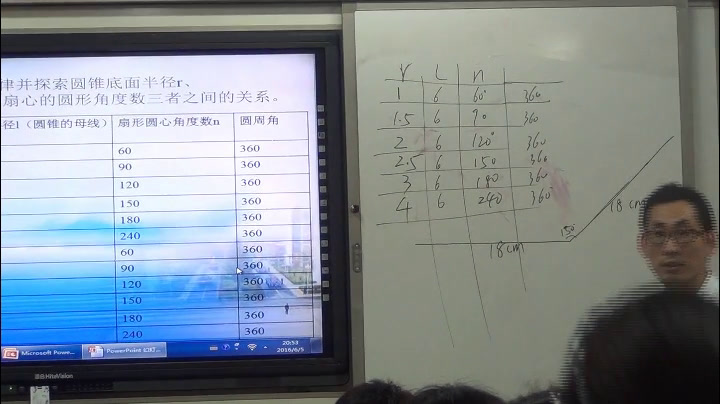 律并探索圆锥底面半径r、
扇心的圆形角度数三者之间的关系。
径l（圆锥的母线） 扇形圆心角度数n 圆周角
60 360
90 360
120 360
150 360
180 360
240 360
60 360
90 360
120 360
150 360
180 360
240 360
Microsoft Powe... PowerPoint 幻灯...
20:53
2018/6/5
HiteVision
r L n
1 6 60° 360
1.5 6 90 360
2 6 120° 360
2.5 6 150 360
3 6 180 360
4 6 240 360°
18cm
150
18cm